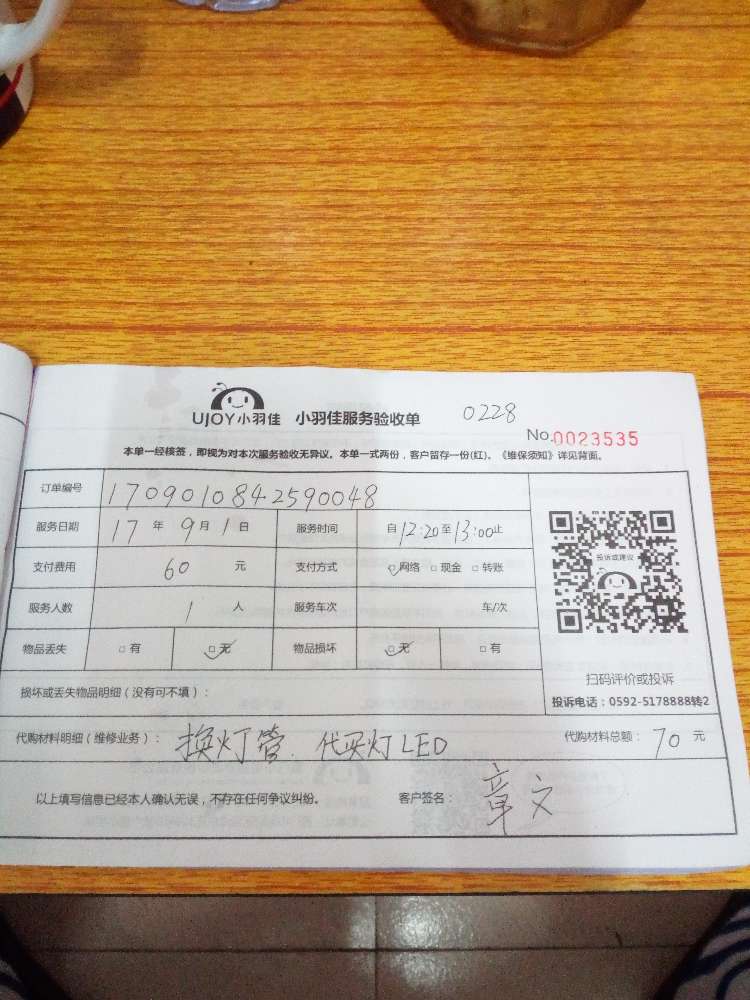 UJOY小羽佳 小羽佳服务验收单 0228
No.0023535
本单一经核签，即视为对本次服务验收无异议。本单一式两份，客户留存一份(红)。《维保须知》详见背面。
订单编号 1709010842590048
服务日期 17 年 9 月 1 日 服务时间 自 12:20 至 13:00 止
支付费用 60 元 支付方式 □网络 □现金 □转账
服务人数 1 人 服务车次 车/次
物品丢失 □有 □无 物品损坏 □无 □有
投诉或建议
扫码评价或投诉
投诉电话：0592-5178888转2
损坏或丢失物品明细（没有可不填）：
代购材料明细（维修业务）： 换灯管. 代买灯LED 代购材料总额： 70 元
以上填写信息已经本人确认无误，不存在任何争议纠纷。 客户签名： 章文